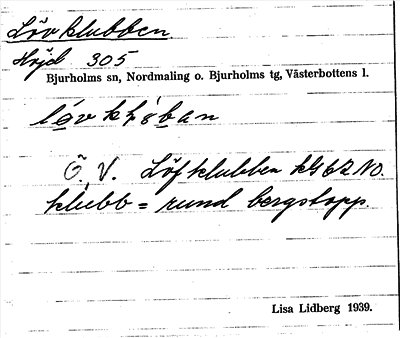 Lövklubben
Höjd 305
Bjurholms sn, Nordmaling o. Bjurholms tg, Västerbottens l.
Ö. V. Löfklubben
klubb = rund bergstopp.
Lisa Lidberg 1939.